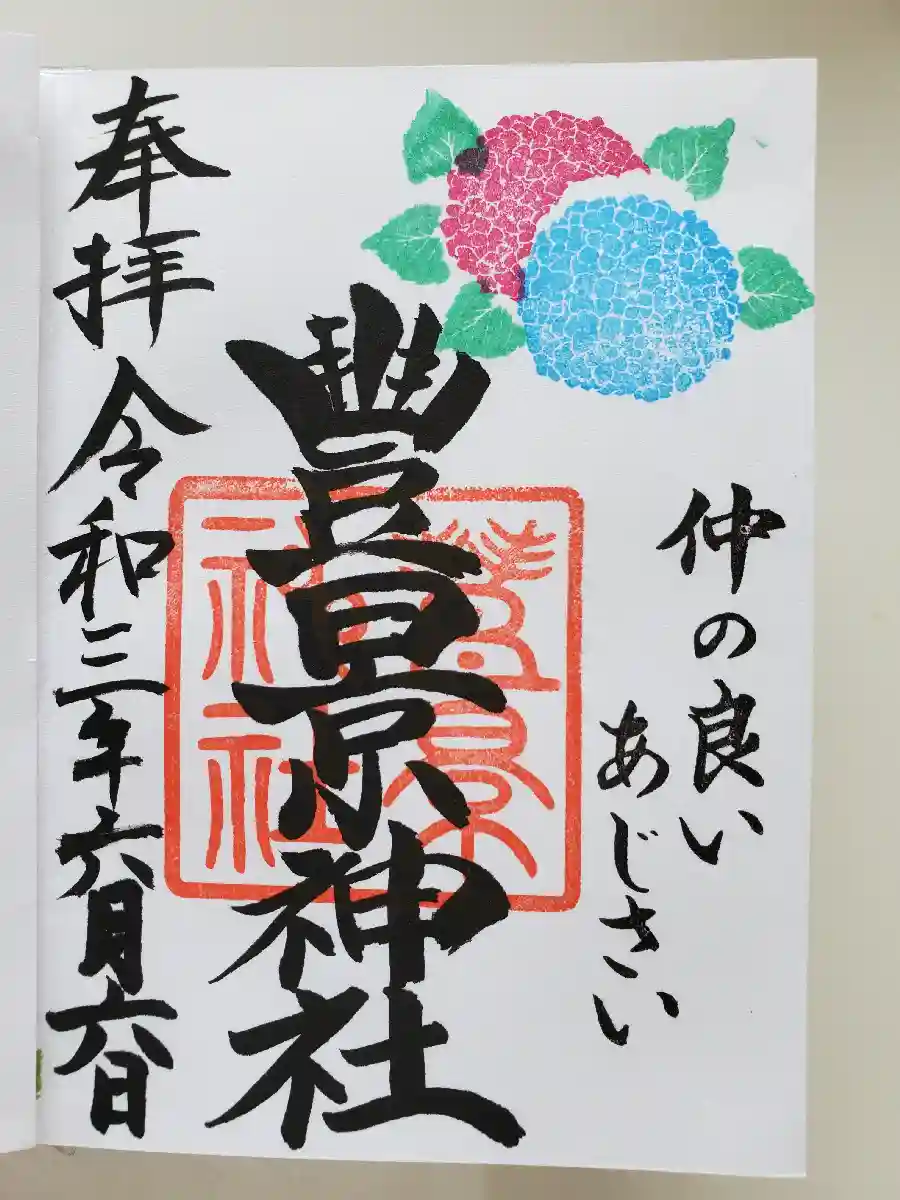 仲の良い
あじさい
豐景神社
豐景神社
奉拝 令和三年六月六日